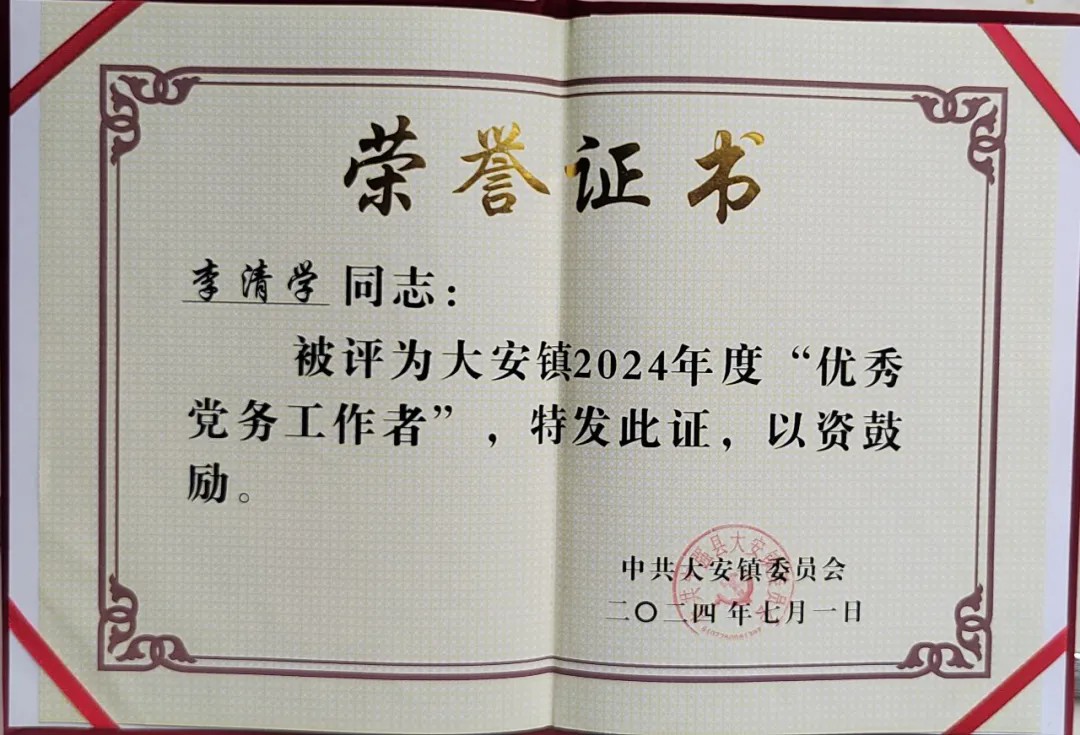 荣誉证书
李清学 同志：
被评为大安镇2024年度“优秀
党务工作者”，特发此证，以资鼓
励。
中共大安镇委员会
二〇二四年七月一日